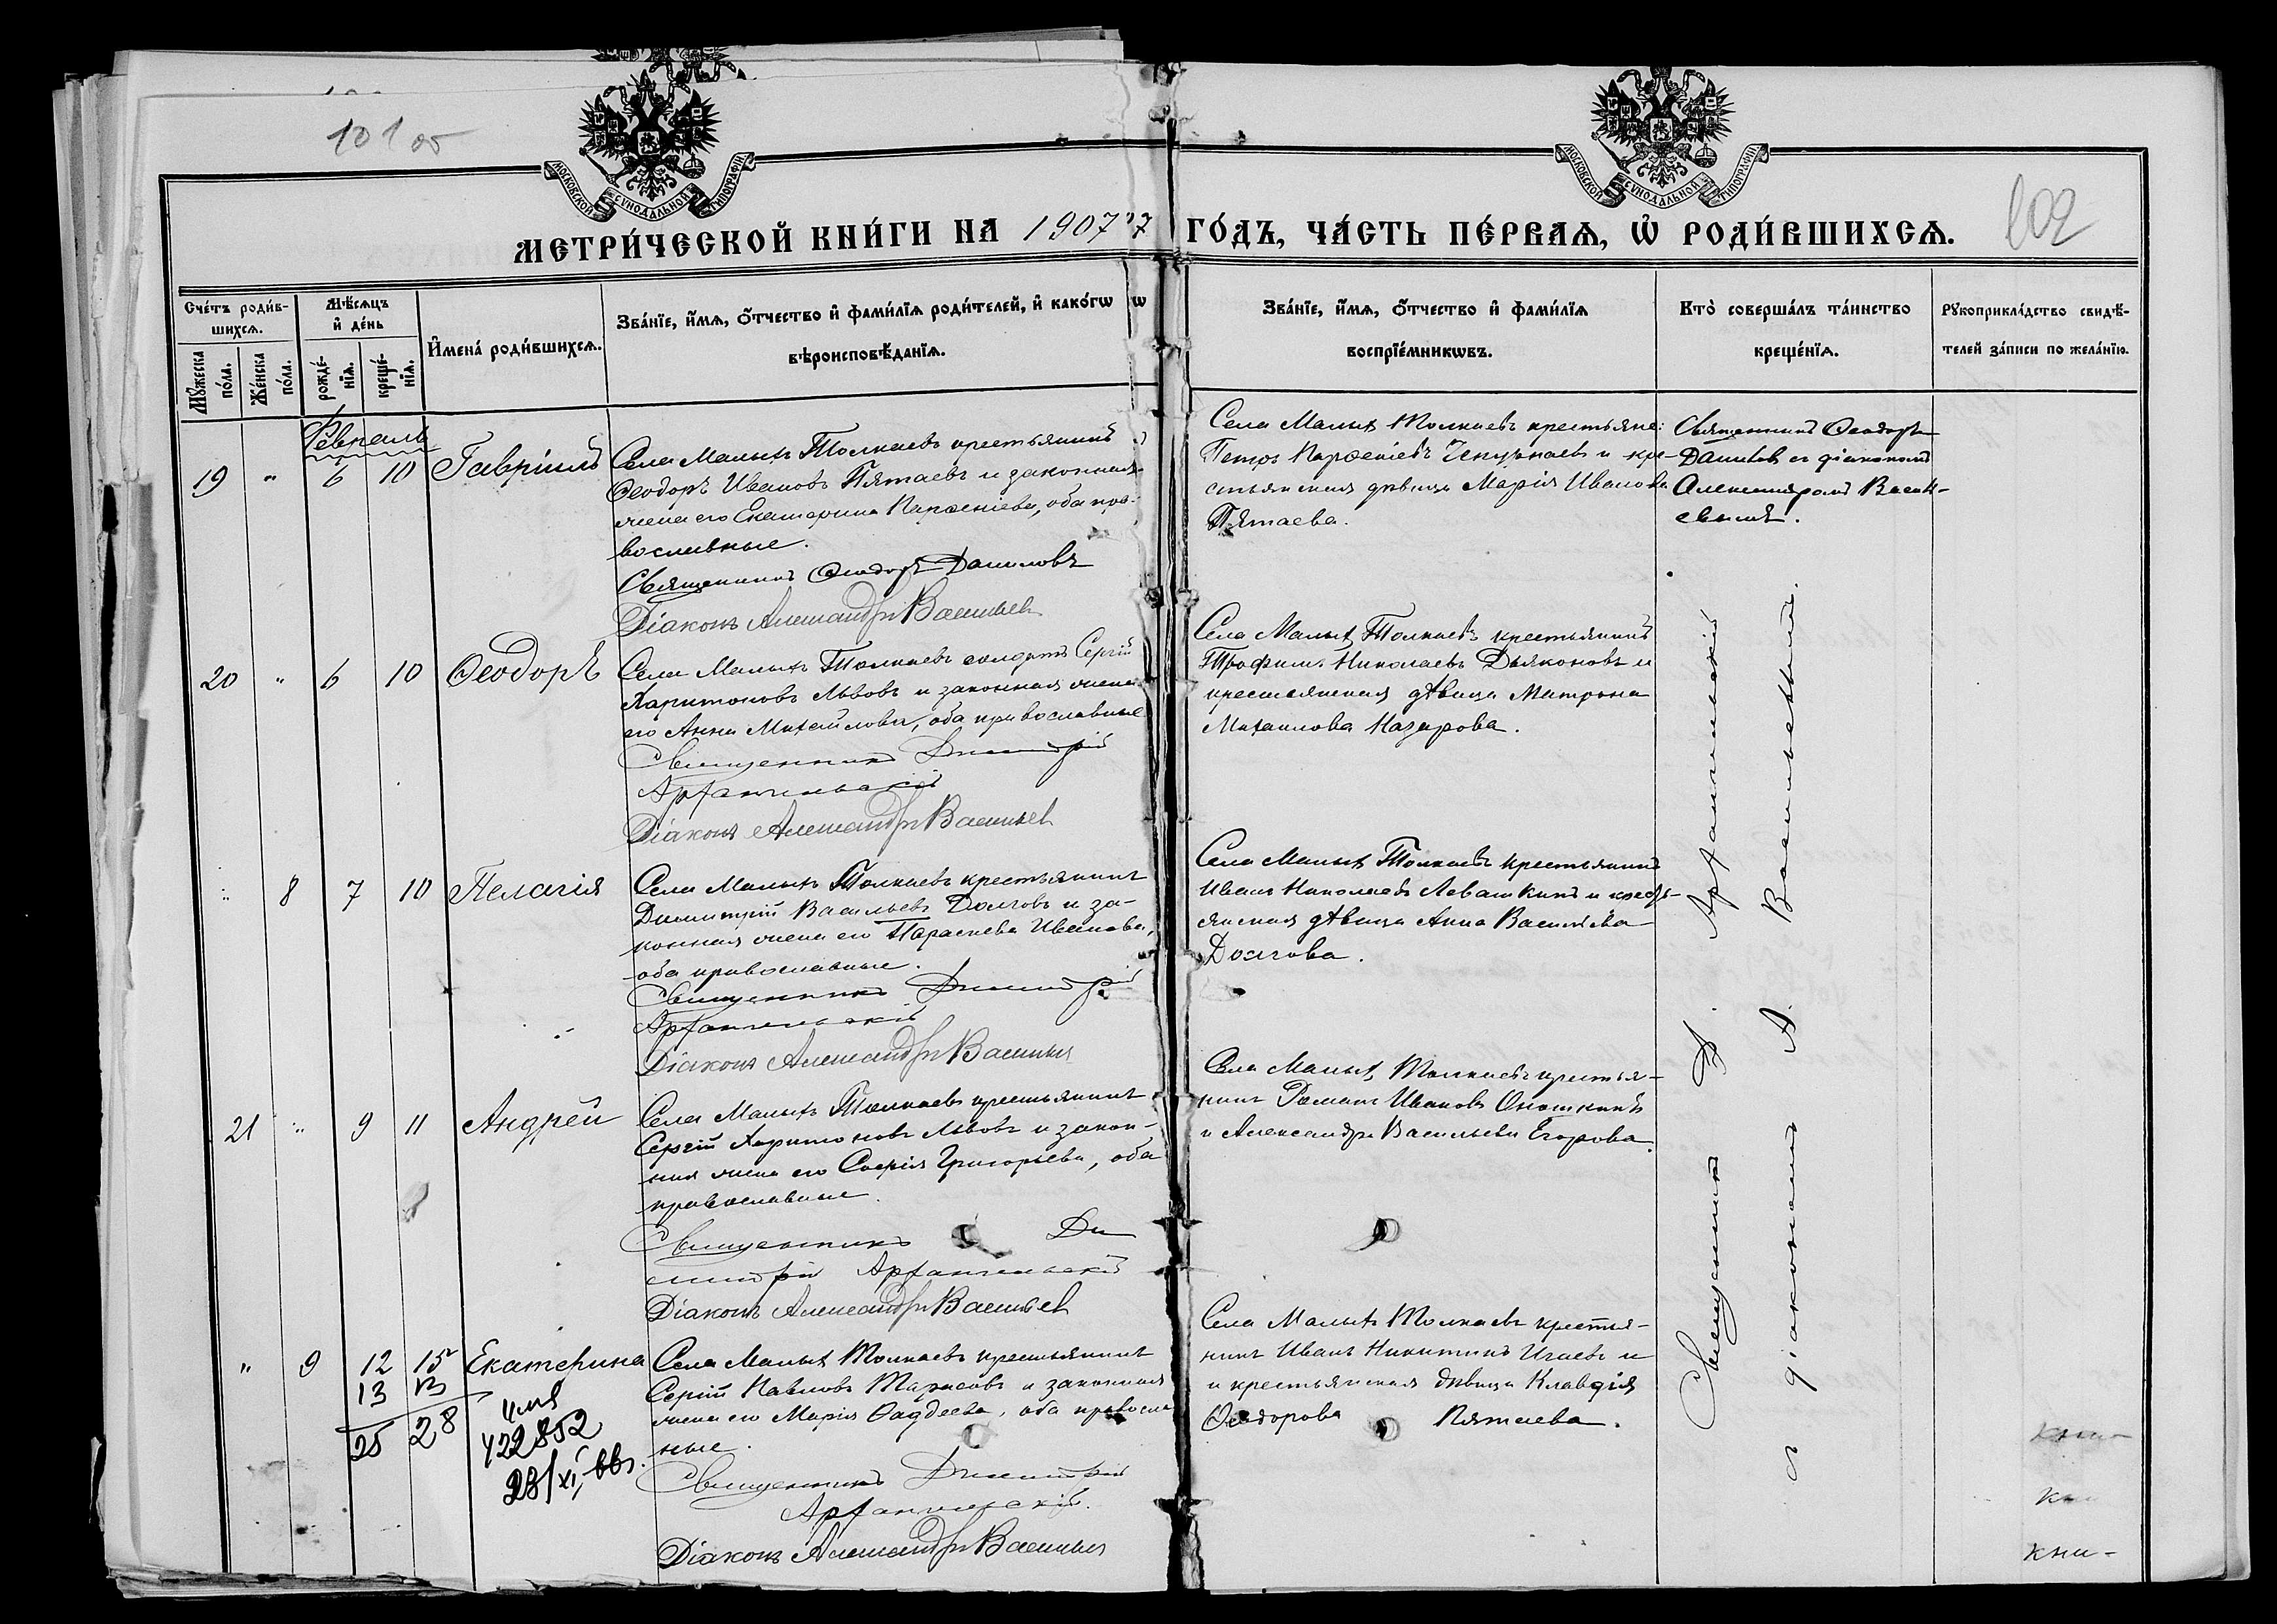 101 об
МОСКОВСКОЙ СѴНОДАЛЬНОЙ ТИПОГРАФІИ
МОСКОВСКОЙ СѴНОДАЛЬНОЙ ТИПОГРАФІИ
МЕТРИ́ЧЕСКОЙ КНИ́ГИ НА 1907 7 ГО́ДЪ, ЧА́СТЬ ПЕ́РВАѦ, Ѡ҆ РОДИ́ВШИХСѦ.
102
Сче́тъ роди́в-
шихсѧ.
Мꙋ́жеска
по́ла.
Же́нска
по́ла.
Мѣ́сѧцъ
и҆ де́нь
рожде́-
нїѧ.
креще́-
нїѧ.
И҆мена́ роди́вшихсѧ.
Зва́нїе, и҆́мѧ, ѻ҆́тчество и҆ фами́лїѧ роди́телей, и҆ како́гѡ
вѣроисповѣ́данїѧ.
Зва́нїе, и҆́мѧ, ѻ҆́тчество и҆ фами́лїѧ
воспрїе́мникѡвъ.
Кто̀ соверша́лъ та́инство
креще́нїѧ.
Рꙋкоприкла́дство свидѣ́-
телей за́писи по жела́нїю.
Февраль
19 " 6 10 Гавріилъ
Села Малыхъ Толкаевъ крестьянинъ
Ѳеодоръ Ивановъ Пятаевъ и законная
жена его Екатерина Парѳеніева, оба пра-
вославные.
Священникъ Ѳеодоръ Даниловъ
Діаконъ Александръ Васильев
Села Малых Толкаевъ крестьяне:
Петръ Парѳеніевъ Чепурнаевъ и кре-
стьянская дѣвица Марія Иванова
Пятаева.
Священникъ Ѳеодоръ
Даниловъ съ діакономъ
Александромъ Василь-
евымъ.
20 " 6 10 Ѳеодоръ
Села Малыхъ Толкаевъ солдатъ Сергій
Харитоновъ Львовъ и законная жена
его Анна Михайлова, оба православные
Священникъ Димитрій
Архангельскій
Діаконъ Александръ Васильев
Села Малыхъ Толкаевъ крестьянинъ
Трофимъ Николаевъ Дьяконовъ и
крестьянская дѣвица Матрона
Михаилова Назарова.
" 8 7 10 Пелагія
Села Малыхъ Толкаевъ крестьянинъ
Димитрій Васильевъ Долговъ и за-
конная жена его Параскева Иванова,
оба православные.
Священникъ Димитрій
Архангельскій
Діаконъ Александръ Васильев
Села Малыхъ Толкаевъ крестьянинъ
Иванъ Николаевъ Левашкинъ и кресть-
янская дѣвица Анна Васильева
Долгова.
21 " 9 11 Андрей
Села Малыхъ Толкаевъ крестьянинъ
Сергій Харитоновъ Львовъ и закон-
ная жена его Софія Григорьева, оба
православные.
Священникъ Ди
митрій Архангельскій
Діаконъ Александръ Васильев
Села Малыхъ Толкаевъ крестья-
нинъ Романъ Ивановъ Оношкинъ
и Александра Васильева Егорова.
" 9 12 15 Екатерина
13 13
25 28
422852
28/XI
Села Малыхъ Толкаевъ крестьянинъ
Сергій Павловъ Тарасовъ и законная
жена его Марія Ѳаддеева, оба правосла
ные.
Священникъ Димитрій
Архангельскій.
Діаконъ Александръ Васильев
Села Малыхъ Толкаевъ крестья-
нинъ Иванъ Никитинъ Игаевъ и
и крестьянская дѣвица Клавдія
Ѳеодорова Пятаева.
Священникъ Д. Архангельскій
съ діакономъ А. Васильевымъ.
кни-
кни-